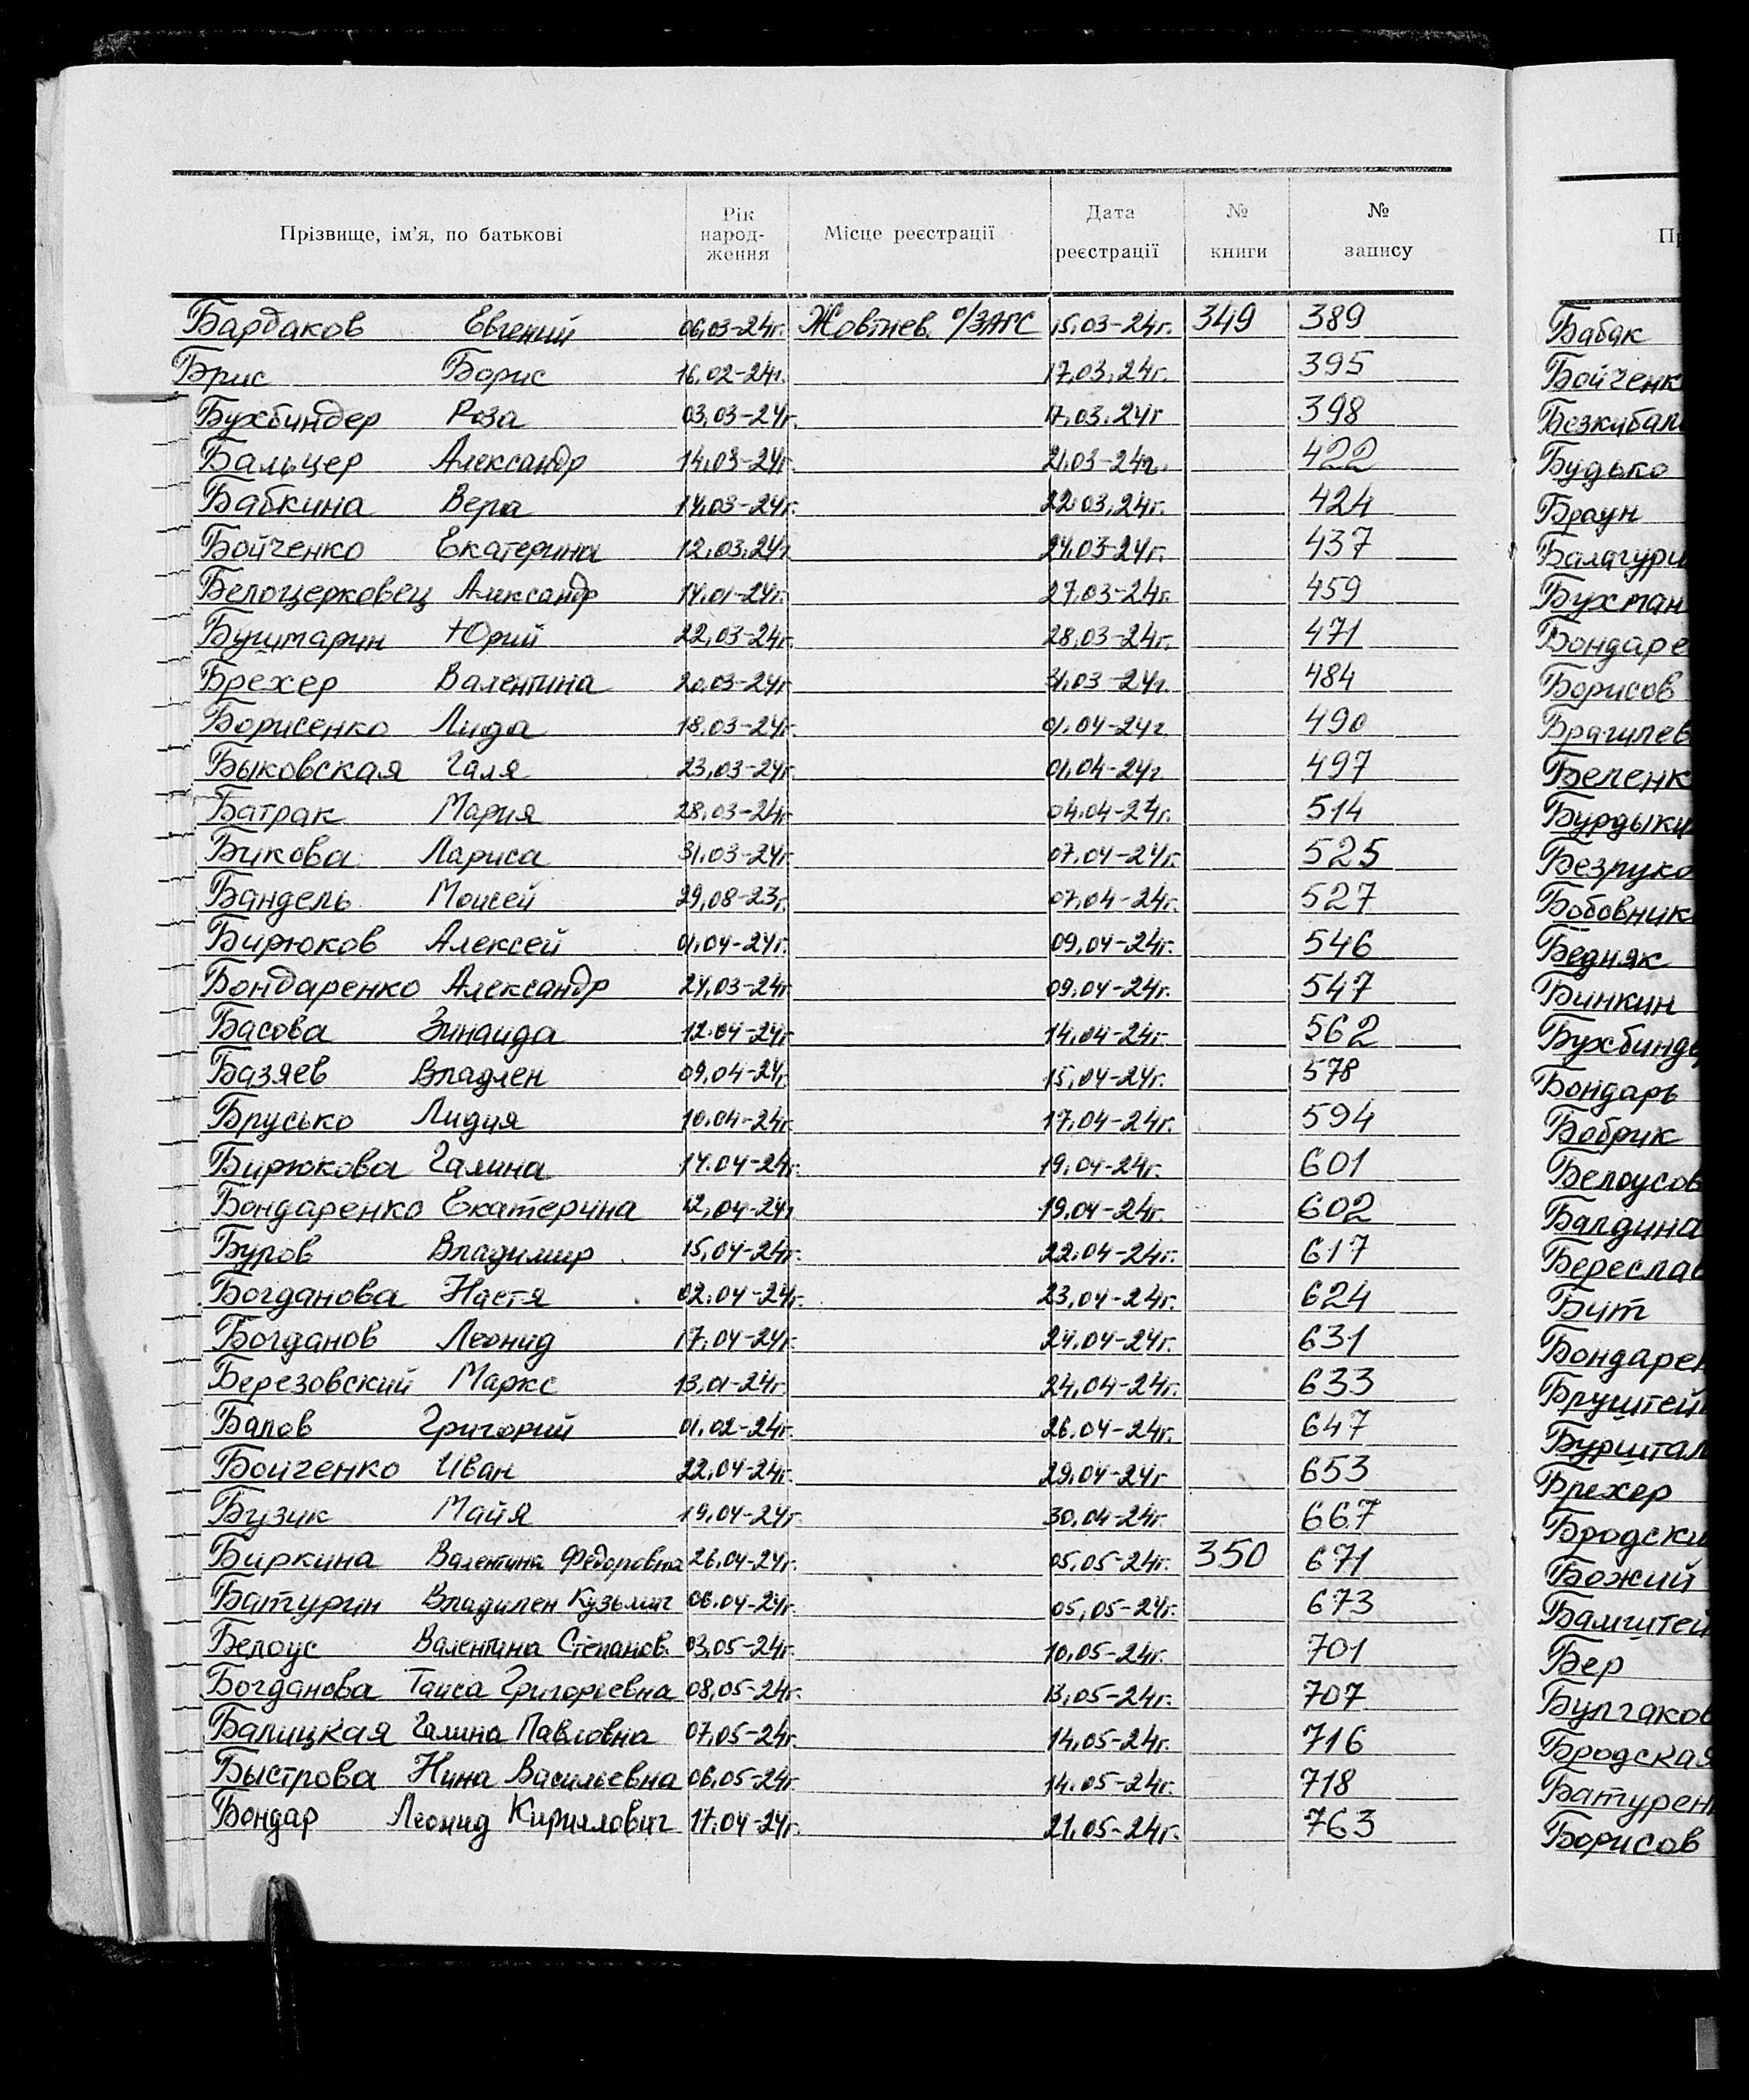 Прізвище, ім'я, по батькові Рік народ-ження Місце реєстрації Дата реєстрації № книги № запису
Бардаков Евгений 06.03-24г. Жовтнев. о/ЗАГС 15.03-24г. 349 389
Брис Борис 16.02-24г. 17.03.24г. 395
Бухбиндер Роза 03.03-24г. 17.03.24г 398
Бальцер Александр 14.03-24г. 21.03-24г. 422
Бабкина Вера 14.03-24г. 22.03.24г. 424
Бойченко Екатерина 12.03.24г 24.03-24г. 437
Белоцерковец Александр 14.01-24г. 27.03-24г. 459
Бушмарин Юрий 22.03-24г. 28.03-24г. 471
Брехер Валентина 20.03-24г 31.03-24г. 484
Борисенко Лида 18.03-24г. 01.04-24г. 490
Быковская Галя 23.03-24г. 01.04-24г 497
Батрак Мария 28.03-24г 04.04-24г. 514
Бикова Лариса 31.03-24г. 07.04-24г. 525
Бандель Моисей 29.08-23г. 07.04-24г. 527
Бирюков Алексей 01.04-24г. 09.04-24г. 546
Бондаренко Александр 24.03-24г 09.04-24г. 547
Басова Зинаида 12.04-24г 14.04-24г. 562
Базяев Владлен 09.04-24г. 15.04-24г. 578
Брусько Лидия 10.04-24г. 17.04-24г. 594
Бирюкова Галина 14.04-24г. 19.04-24г. 601
Бондаренко Екатерина 12.04-24г 19.04-24г. 602
Буров Владимир 15.04-24г. 22.04-24г. 617
Богданова Настя 02.04-24г. 23.04-24г. 624
Богданов Леонид 17.04-24г. 24.04-24г. 631
Березовский Маркс 13.01-24г. 24.04-24г. 633
Балов Григорий 01.02-24г. 26.04-24г. 647
Бойченко Иван 22.04-24г. 29.04-24г 653
Бузик Майя 19.04-24г. 30.04-24г. 667
Биркина Валентина Федоровна 26.04-24г. 05.05-24г. 350 671
Батурин Владилен Кузьмич 06.04-24г. 05.05-24г. 673
Белоус Валентина Степанов. 03.05-24г. 10.05-24г. 701
Богданова Таиса Григорьевна 08.05-24г. 13.05-24г. 707
Балицкая Галина Павловна 07.05-24г. 14.05-24г. 716
Быстрова Нина Васильевна 06.05-24г. 14.05-24г. 718
Бондар Леонид Кириллович 17.04-24г. 21.05-24г. 763
Бабак
Бойченк
Будько
Браун
Бухман
Бондаре
Борисов
Беленк
Безруко
Бобовник
Бедняк
Бинкин
Бухбинд
Бондарь
Бобрик
Белоусов
Балдина
Береслав
Бит
Бондарен
Бруштей
Бурштал
Брехер
Бродски
Божий
Бамштей
Бер
Булгаков
Бродская
Батурен
Борисов